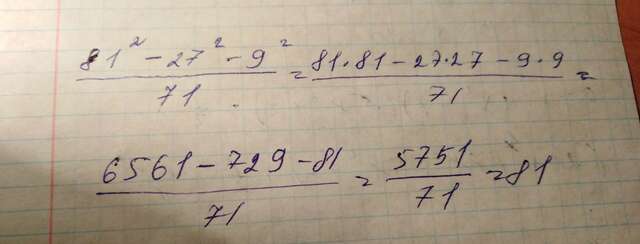 81² − 27² − 9² / 71 = 81·81 − 27·27 − 9·9 / 71 =
6561 − 729 − 81 / 71 = 5751 / 71 = 81